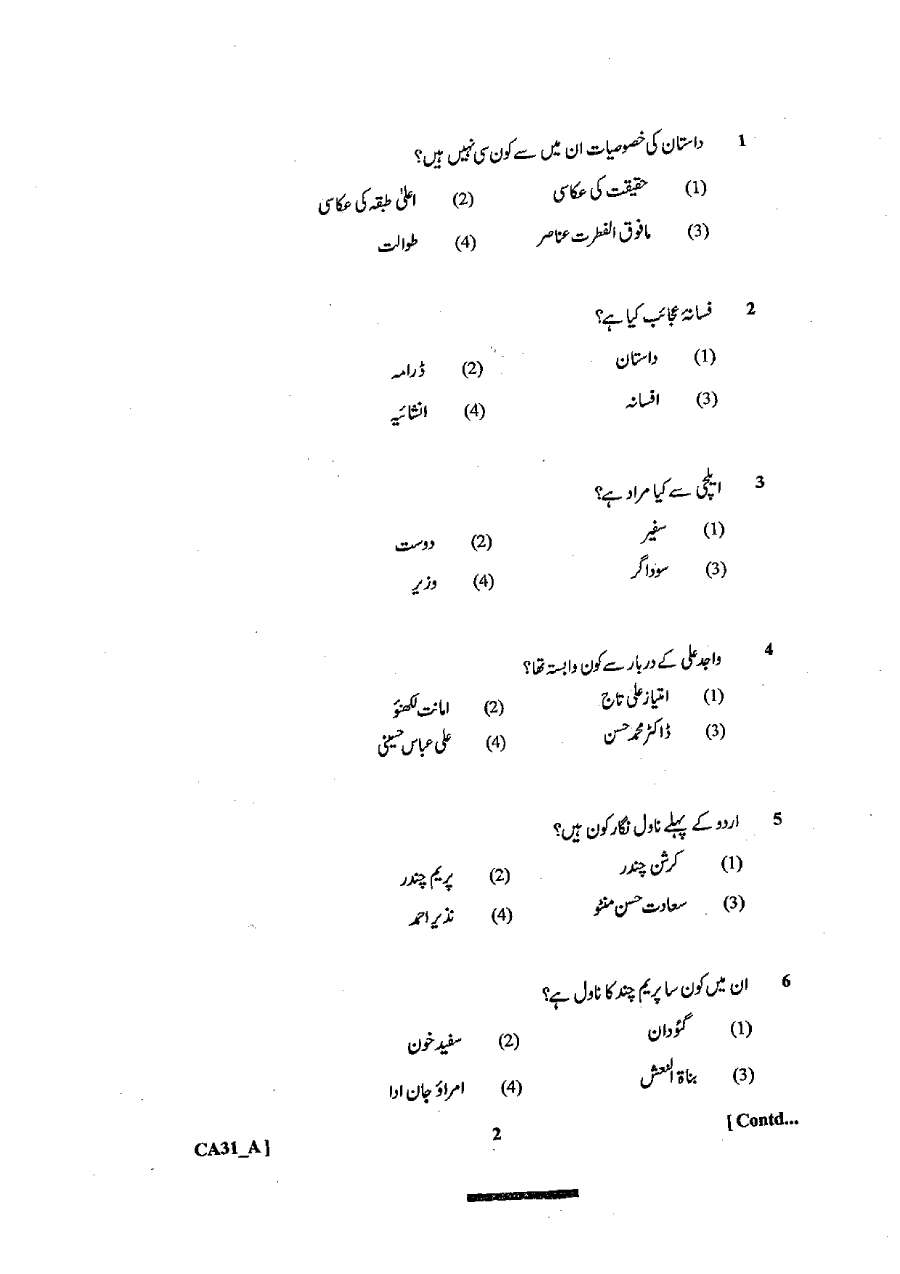 1 داستان کی خصوصیات ان میں سے کون سی نہیں ہیں؟
(1) حقیقت کی عکاسی (2) اعلیٰ طبقہ کی عکاسی
(3) مافوق الفطرت عناصر (4) طوالت
2 فسانۂ عجائب کیا ہے؟
(1) داستان (2) ڈرامہ
(3) افسانہ (4) انشائیہ
3 ایلچی سے کیا مراد ہے؟
(1) سفیر (2) دوست
(3) سوداگر (4) وزیر
4 واجد علی کے دربار سے کون وابستہ تھا؟
(1) امتیاز علی تاج (2) امانت لکھنؤ
(3) ڈاکٹر محمد حسن (4) علی عباس حسینی
5 اردو کے پہلے ناول نگار کون ہیں؟
(1) کرشن چندر (2) پریم چندر
(3) سعادت حسن منٹو (4) نذیر احمد
6 ان میں کون سا پریم چند کا ناول ہے؟
(1) گئودان (2) سفید خون
(3) بناة النعش (4) امراؤ جان ادا
CA31_A ] 2 [ Contd...